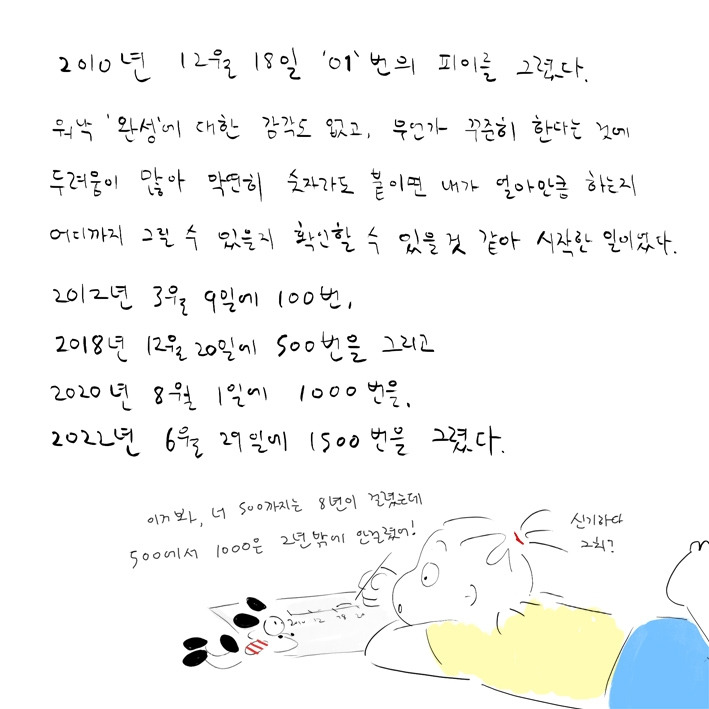 2010년 12월 18일 '01'번의 피이를 그렸다.
워낙 '완성'에 대한 감각도 없고, 무언가 꾸준히 한다는 것에
두려움이 많아 막연히 숫자라도 붙이면 내가 얼마만큼 하는지
어디까지 그릴 수 있을지 확인할 수 있을것 같아 시작한 일이었다.
2012년 3월 9일에 100번,
2018년 12월 20일에 500번을 그리고
2020년 8월 1일에 1000번을,
2022년 6월 29일에 1500번을 그렸다.
이거봐, 너 500까지는 8년이 걸렸는데
500에서 1000은 2년밖에 안걸렸어!
신기하다
그치?